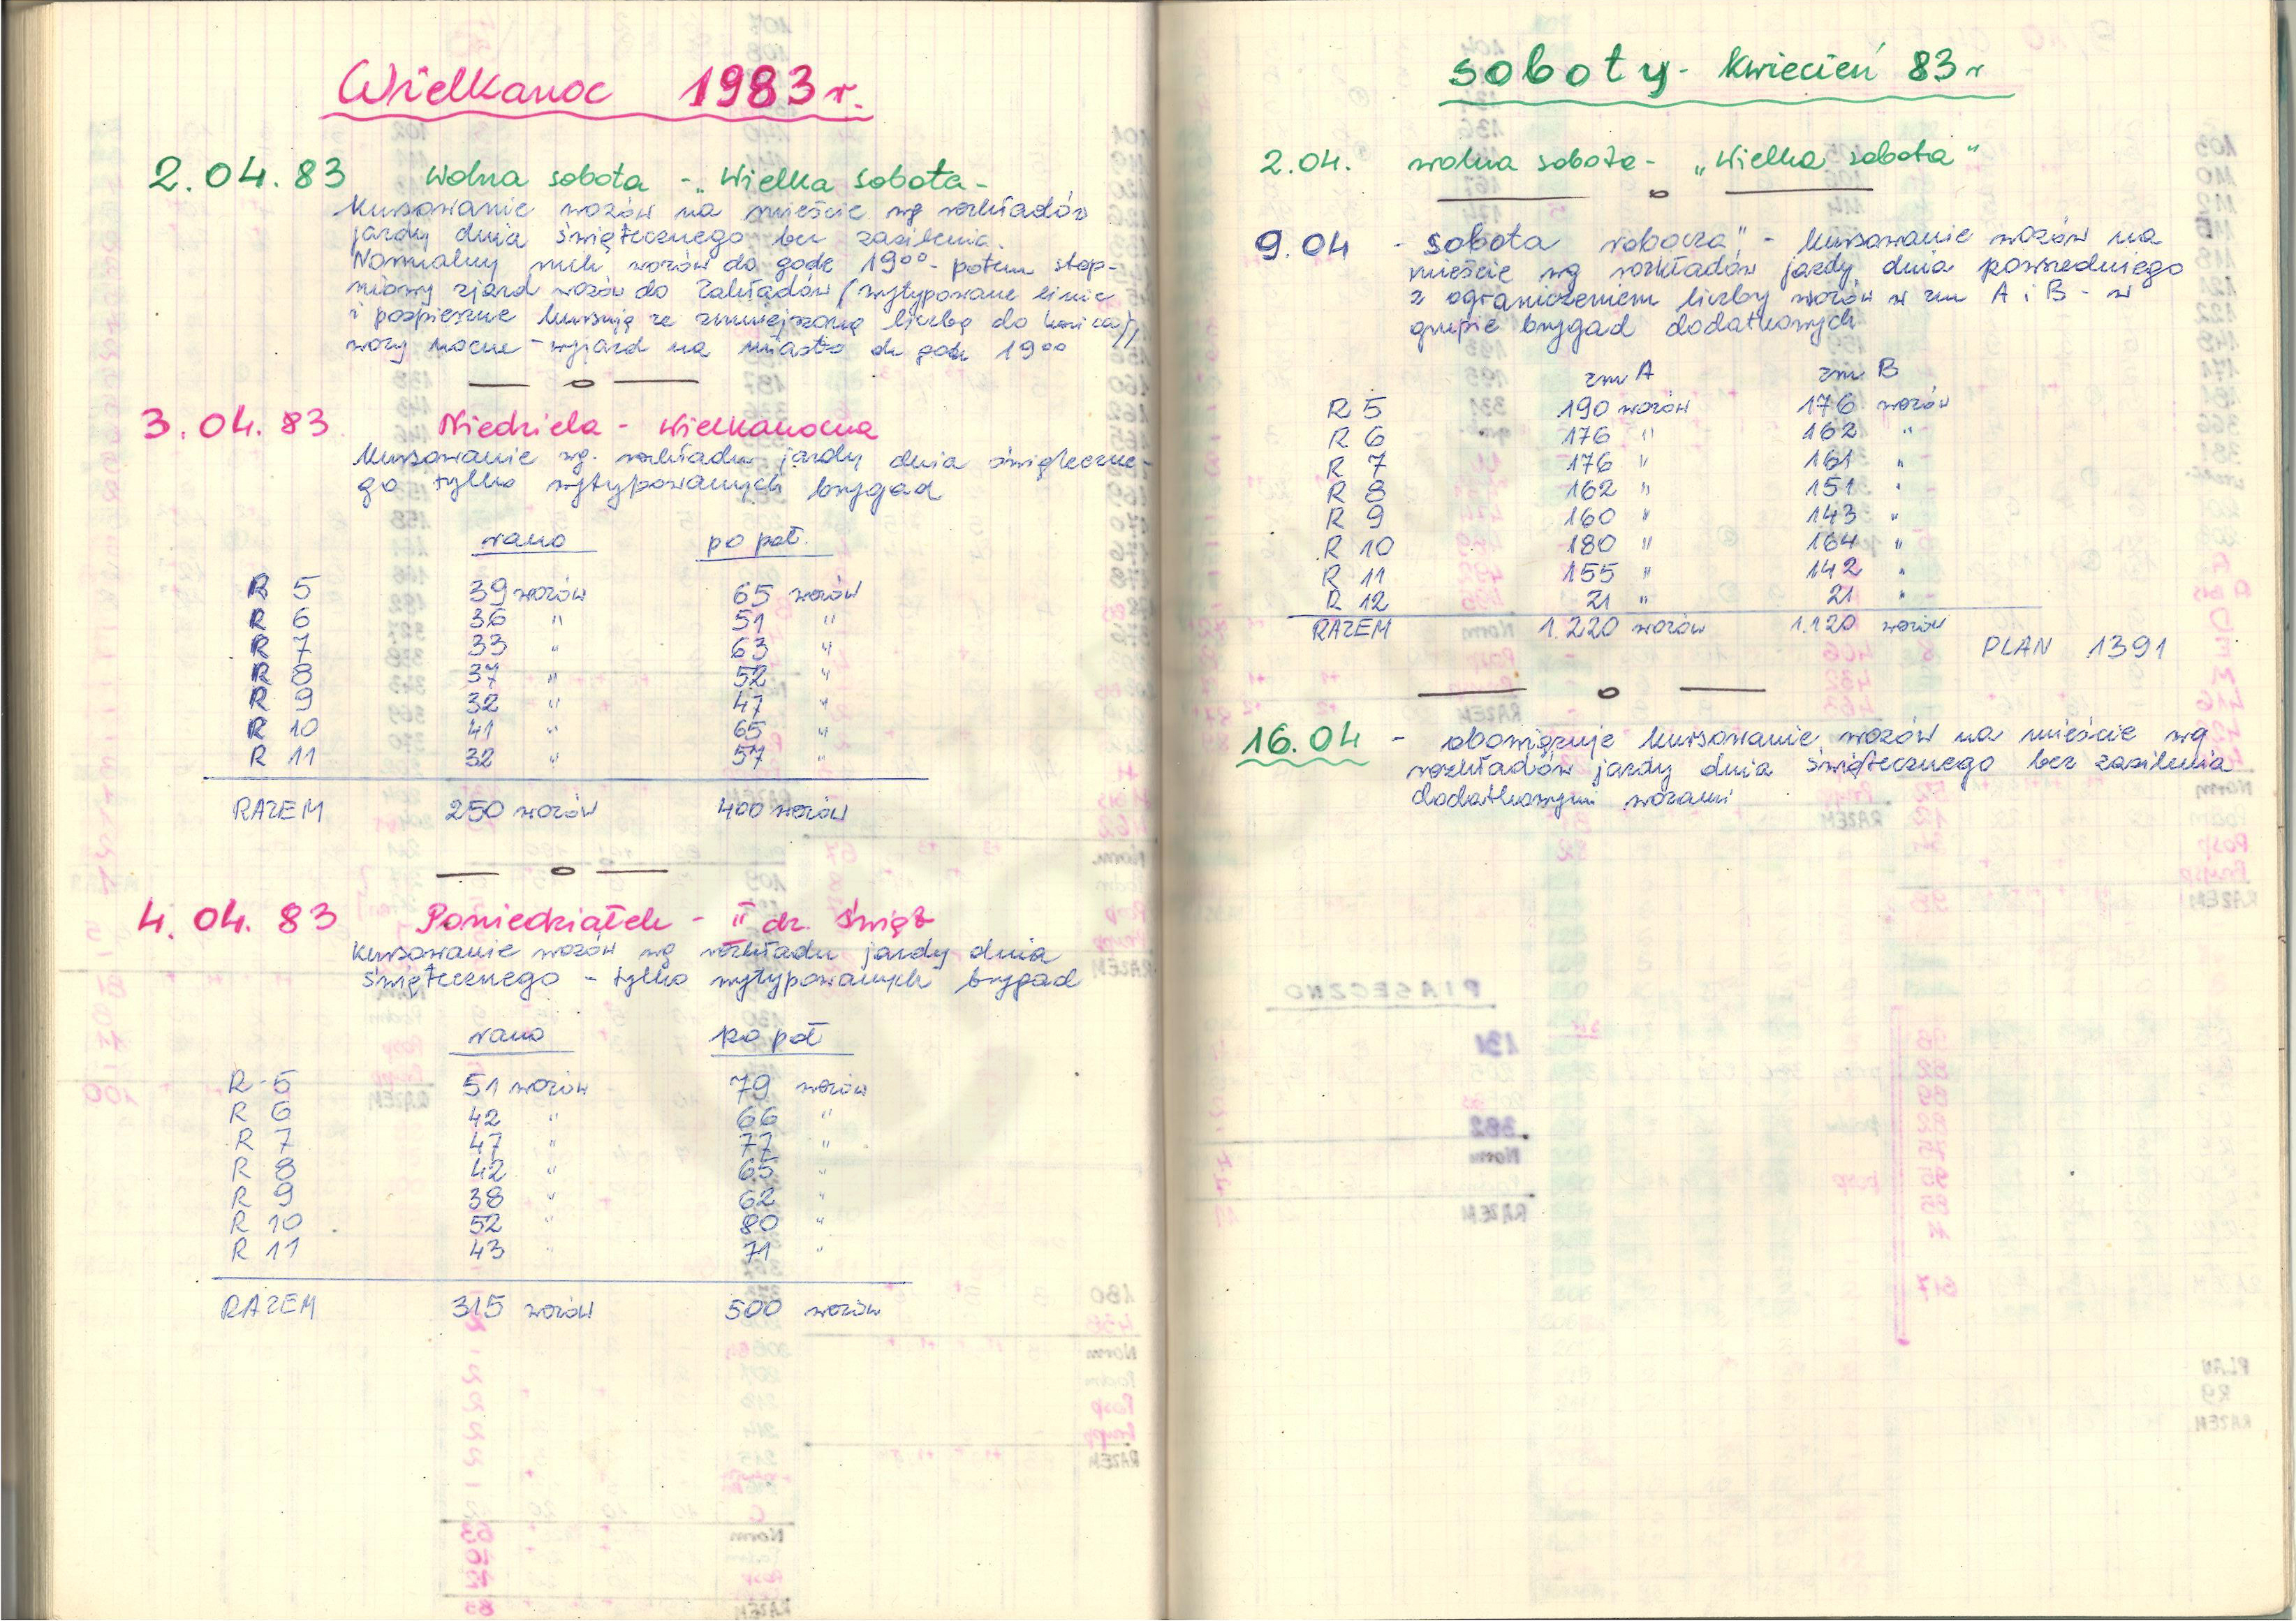 Wielkanoc 1983 r.
2.04.83 Wolna sobota - „Wielka sobota -
Kursowanie wozów na mieście wg rozkładów
jazdy dnia świątecznego bez zasilenia.
Normalny ruch wozów do godz 19⁰⁰ - potem stop-
niowy zjazd wozów do Zakładów (wytypowane linie
i pospieszne kursują ze zmniejszoną liczbą do końca),
wozy nocne - wyjazd na miasto do godz 19⁰⁰
— o —
3.04.83 Niedziela - Wielkanocna
Kursowanie wg. rozkładu jazdy dnia świąteczne-
go tylko wytypowanych brygad
rano po poł.
R 5 39 wozów 65 wozów
R 6 36 " 51 "
R 7 33 " 63 "
R 8 37 " 52 "
R 9 32 " 47 "
R 10 41 " 65 "
R 11 32 " 57 "
RAZEM 250 wozów 400 wozów
— o —
4.04.83 Poniedziałek - II dz. Świąt
Kursowanie wozów wg rozkładu jazdy dnia
świątecznego - tylko wytypowanych brygad
rano po poł
R - 5 51 wozów 79 wozów
R 6 42 " 66 "
R 7 47 " 77 "
R 8 42 " 65 "
R 9 38 " 62 "
R 10 52 " 80 "
R 11 43 " 71 "
RAZEM 315 wozów 500 wozów
soboty - kwiecień 83 r
2.04. wolna sobota - „Wielka sobota"
— o —
9.04 - sobota robocza" - kursowanie wozów na
mieście wg rozkładów jazdy dnia powszedniego
z ograniczeniem liczby wozów w zm A i B - w
grupie brygad dodatkowych
zm A zm B
R 5 190 wozów 176 wozów
R 6 176 " 162 "
R 7 176 " 161 "
R 8 162 " 151 "
R 9 160 " 143 "
R 10 180 " 164 "
R 11 155 " 142 "
R 12 21 " 21 "
RAZEM 1.220 wozów 1.120 wozów
PLAN 1391
— o —
16.04 - obowiązuje kursowanie wozów na mieście wg
rozkładów jazdy dnia świątecznego bez zasilenia
dodatkowymi wozami